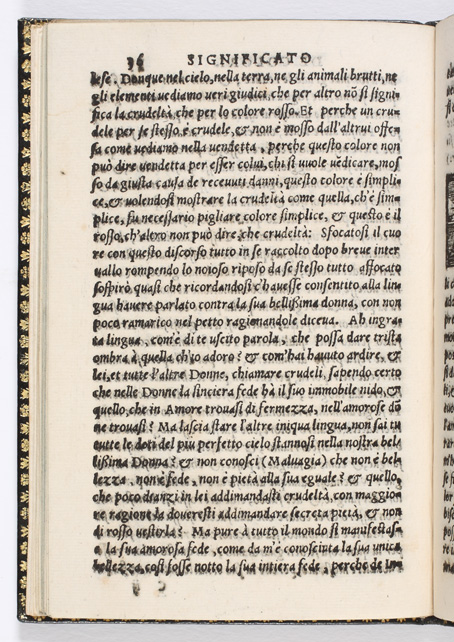 36 SIGNIFICATO
lese. Donque nel cielo, nella terra, ne gli animali brutti, ne
gli elementi uediamo ueri giudici che per altro nõ si signi
fica la crudeltà che per lo colore rosso. Et perche un cru=
dele per se stesso è crudele, & non è mosso dall'altrui offen
sa come uediamo nella uendetta, perche questo colore non
può dire uendetta per esser colui, chi si uuole uẽdicare, mos
so da giusta causa de receuuti danni, questo colore è simpli=
ce, & uolendosi mostrare la crudeltà come quella, ch'è sim=
plice, fu necessario pigliare colore simplice, & questo è il
rosso, ch'altro non può dire, che crudeltà: Sfocatosi il cuo
re con questo discorso tutto in se raccolto dopo breue inter
uallo rompendo lo noioso riposo da se stesso tutto affocato
sospirò quasi che ricordandosi c'hauesse consentito alla lin
gua hauere parlato contra la sua bellissima donna, con non
poco ramarico nel petto ragionandole diceua. Ah ingra=
ta lingua, com'è di te uscito parola, che possa dare trista
ombra à quella ch'io adoro? & com'hai hauuto ardire, &
lei, et tutte l'altre Donne, chiamare crudeli, sapendo certo
che nelle Donne la sinciera fede hà il suo immobile nido, &
quello, che in Amore trouasi di fermezza, nell'amorose dõ
ne trouasi? Ma lascia stare l'altre iniqua lingua, non sai tu
tutte le doti del piu perfetto cielo stannosi nella nostra bel=
lissima Donna? & non conosci (Maluagia) che non è bel=
lezza, non è fede, non è pietà alla sua eguale? & quello,
che poco dianzi in lei addimandasti crudeltà, con maggio=
re ragione la doueresti addimandare secreta pietà, & non
di rosso uestirla? Ma pure à tutto il mondo si manifestas=
se la sua amorosa fede, come da m'è conosciuta la sua unica
bellezza, così fosse notto la sua intiera fede, perche de